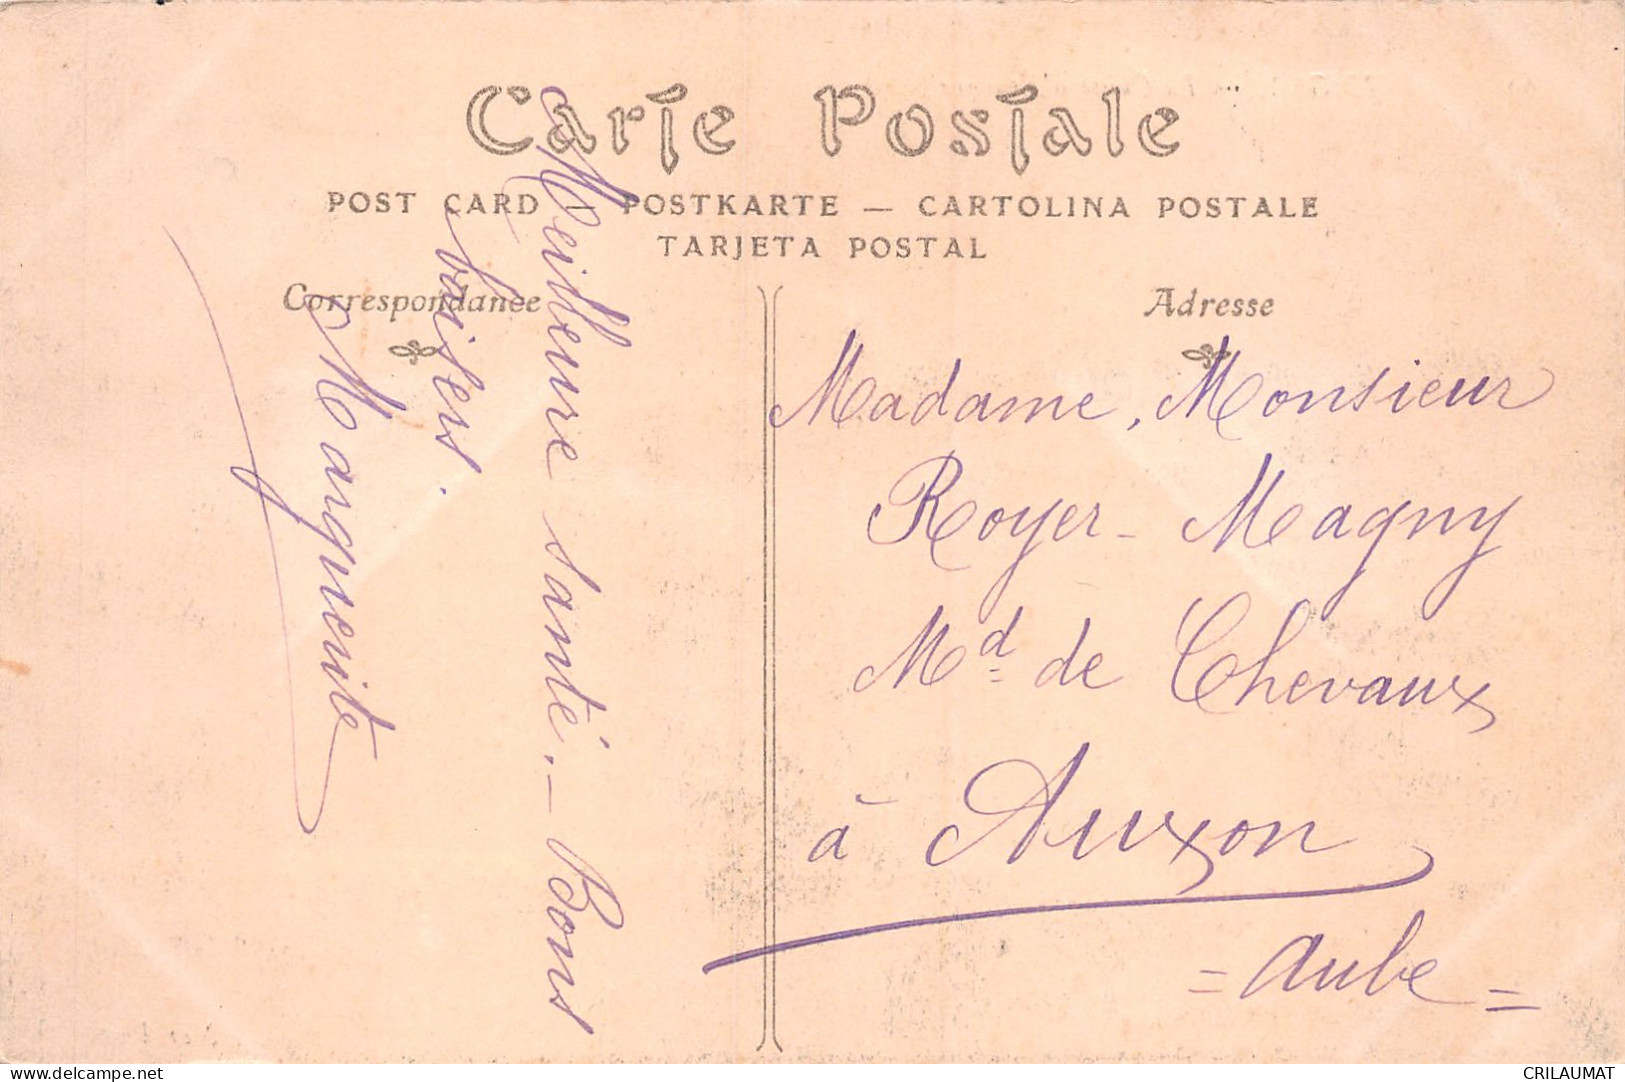 Carte Postale
POST CARD — POSTKARTE — CARTOLINA POSTALE
TARJETA POSTAL
Correspondance
Adresse
Meilleure santé. — Bons
baisers.
Marguerite
Madame, Monsieur
Royer-Magny
Md de Chevaux
à Auxon
= Aube =
delcampe.net
CRILAUMAT